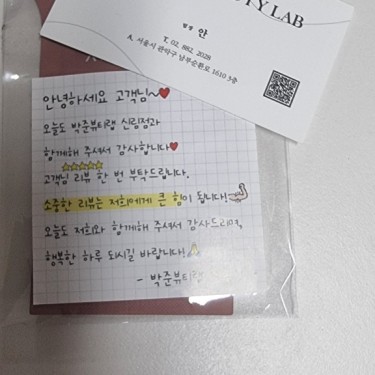 TY LAB
안
T. 02. 882. 2028
A. 서울시 관악구 남부순환로 1610 3층
안녕하세요 고객님~
오늘도 박준뷰티랩 신림점과
함께해 주셔서 감사합니다
고객님 리뷰 한 번 부탁드립니다.
소중한 리뷰는 저희에게 큰 힘이 됩니다!
오늘도 저희와 함께해 주셔서 감사드리며,
행복한 하루 되시길 바랍니다!
- 박준뷰티랩